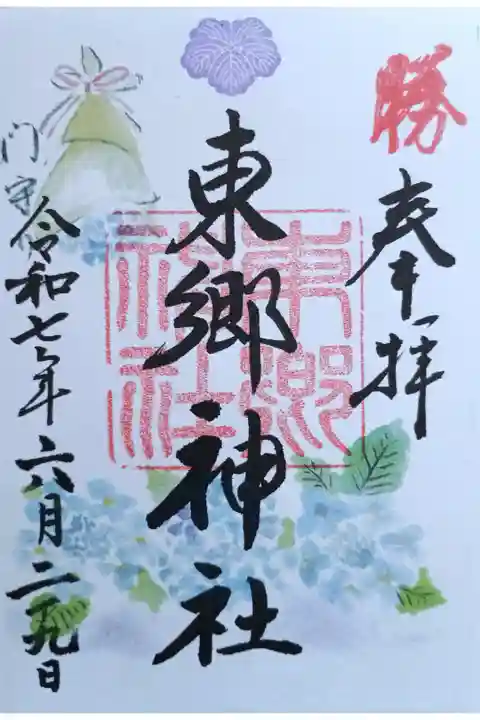 勝
奉拝
東郷神社
東郷神社
門守
令和七年六月二十九日